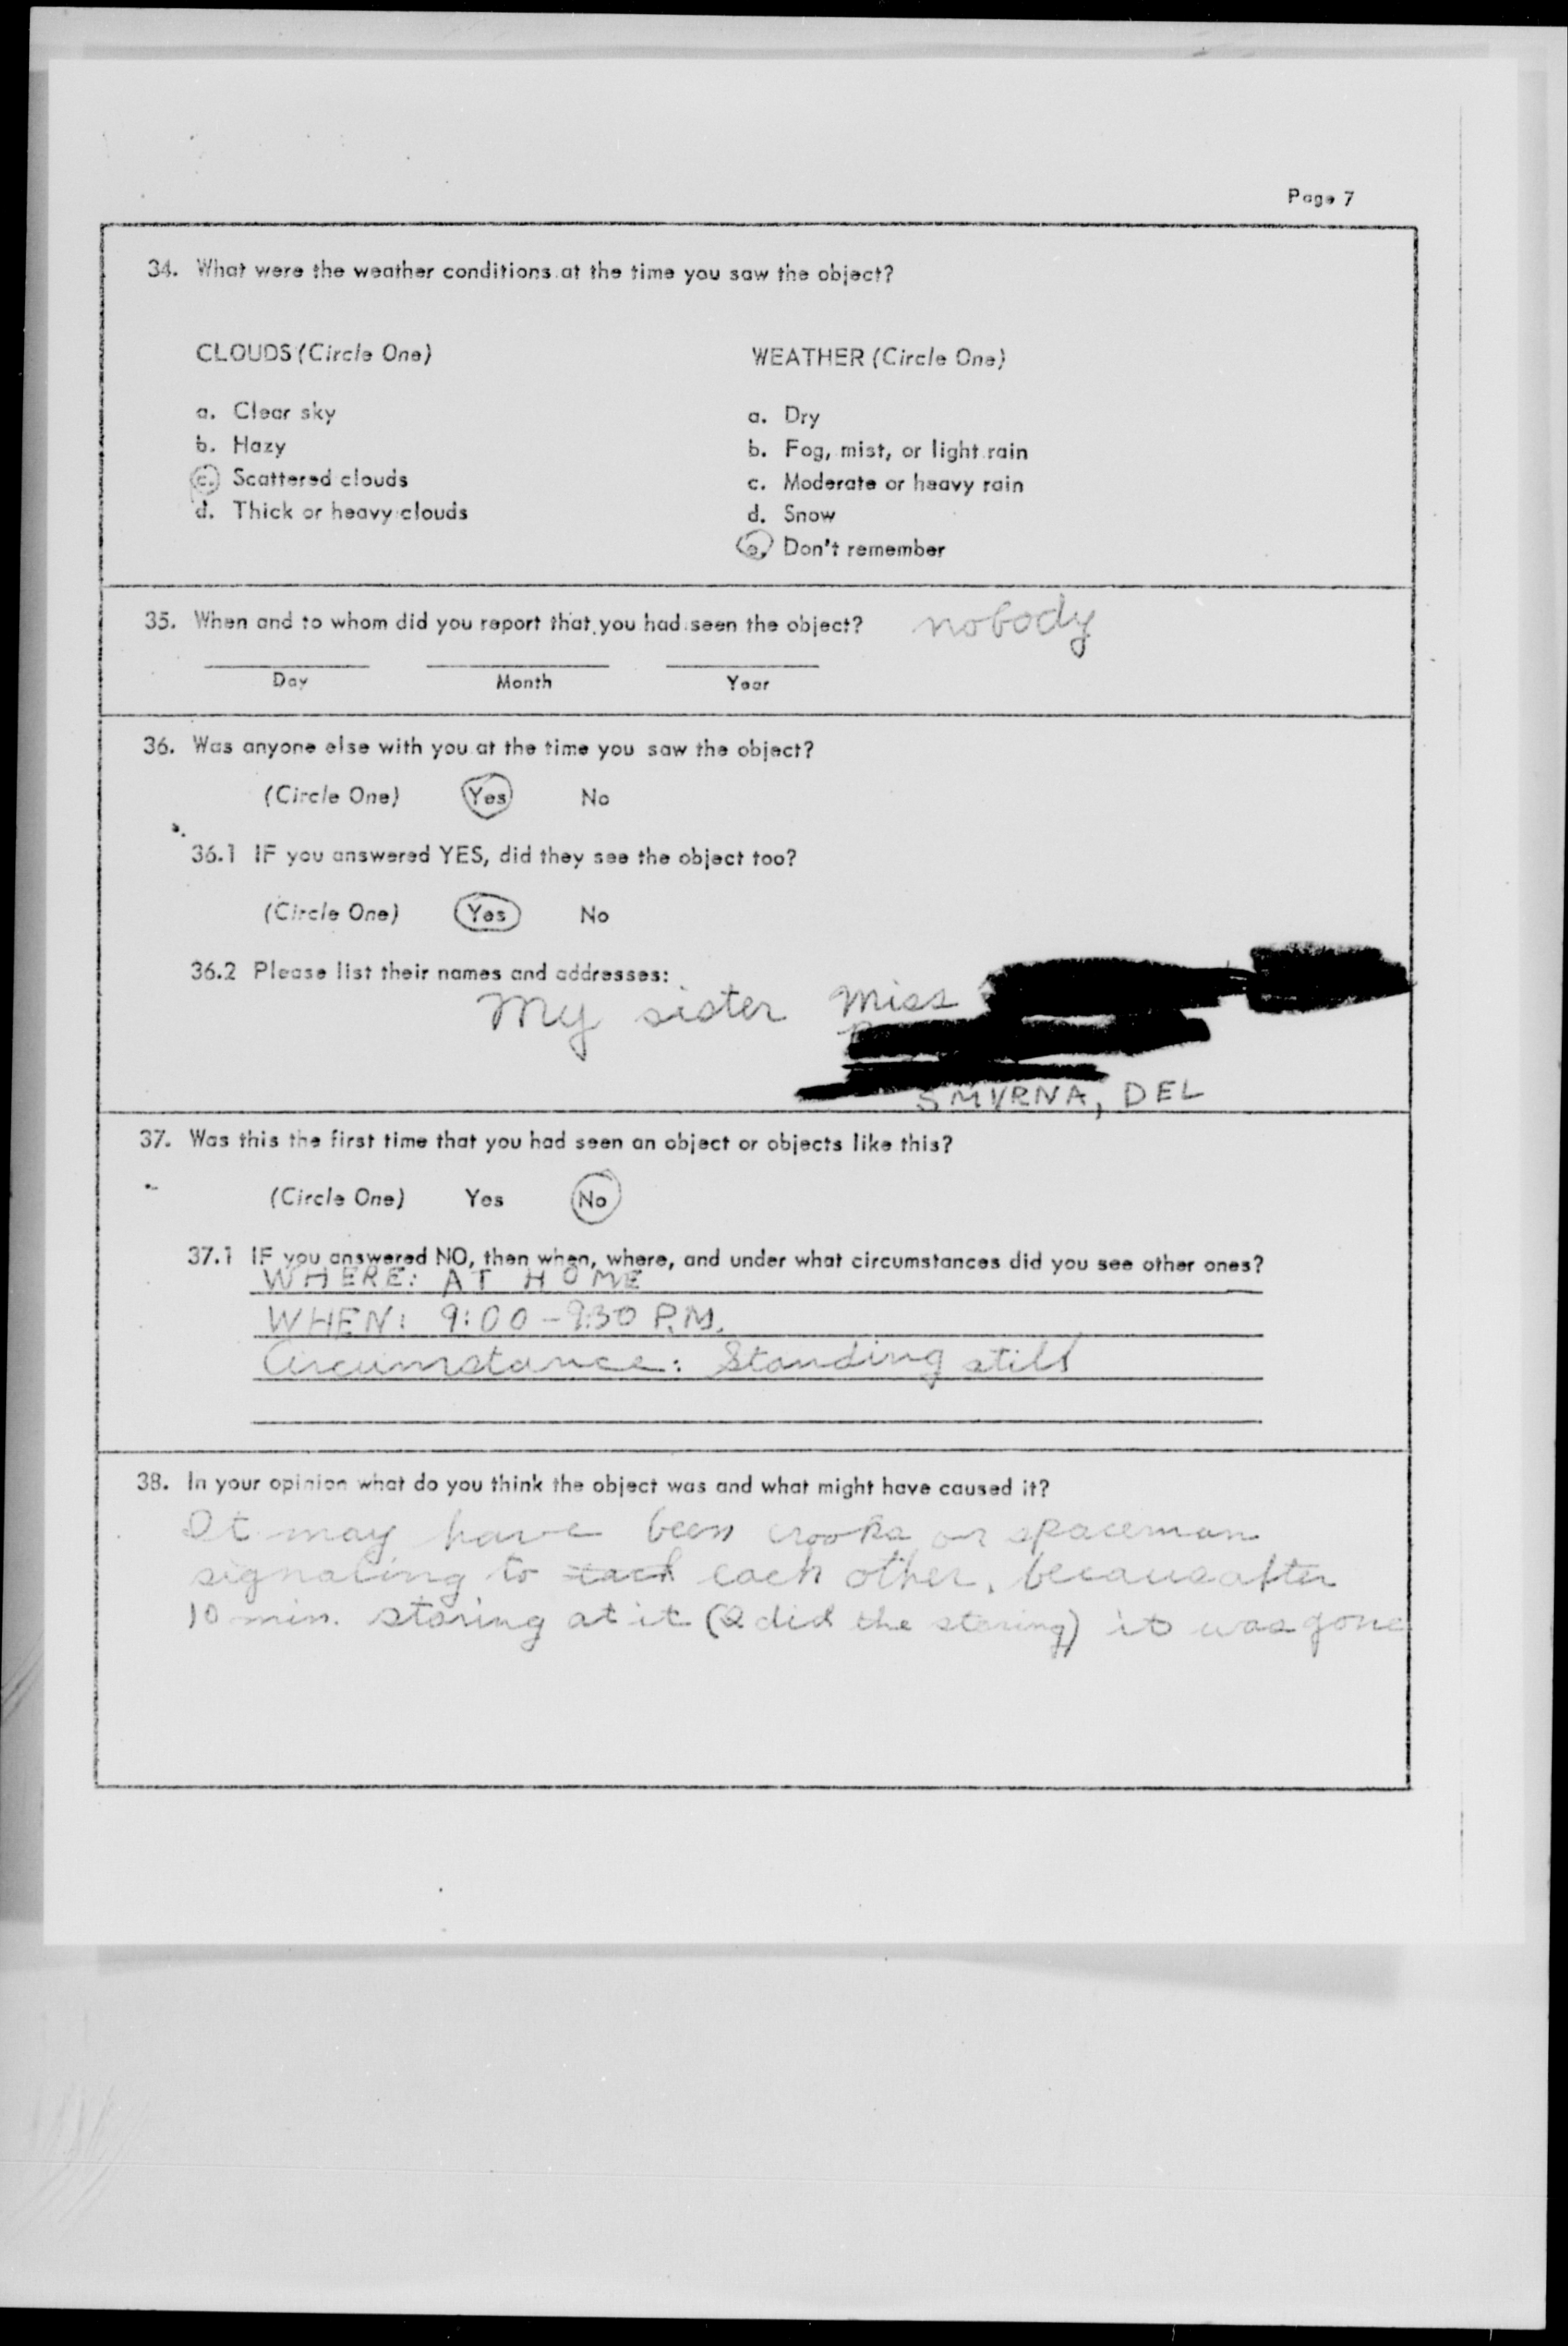 Page 7
34. What were the weather conditions at the time you saw the object?
CLOUDS (Circle One)
a. Clear sky
b. Hazy
c. Scattered clouds
d. Thick or heavy clouds
WEATHER (Circle One)
a. Dry
b. Fog, mist, or light rain
c. Moderate or heavy rain
d. Snow
e. Don't remember
35. When and to whom did you report that you had seen the object? nobody
Day Month Year
36. Was anyone else with you at the time you saw the object?
(Circle One) Yes No
36.1 IF you answered YES, did they see the object too?
(Circle One) Yes No
36.2 Please list their names and addresses:
My sister Miss
SMYRNA, DEL
37. Was this the first time that you had seen an object or objects like this?
(Circle One) Yes No
37.1 IF you answered NO, then when, where, and under what circumstances did you see other ones?
WHERE: AT HOME
WHEN: 9:00-9:30 P.M.
Circumstance: Standing still
38. In your opinion what do you think the object was and what might have caused it?
It may have been crooks or spaceman
signaling to each each other, because after
10 min. staring at it (I did the staring) it was gone